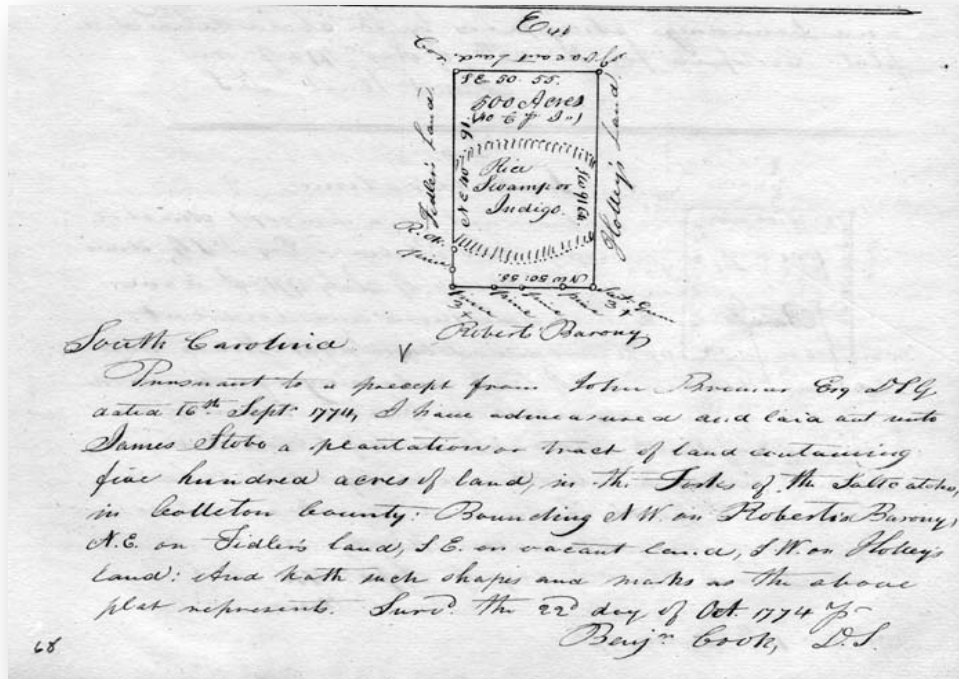 East
Vacant Land
SE 50. 55.
500 Acres
Fidler's Land
N E 40. 91.
Holley's Land
SW 91 Ch.
Rice
Swamp or
Indigo
R. O.
Pine
NW 50: 55.
Pine
3 X
Pine
Pine
Pine
Gum
3 X
Robert's Barony
South Carolina
Pursuant to a precept from John Bremar Esq D S G
dated 16th Septr. 1774, I have admeasured and laid out unto
James Stobo a plantation or tract of land containing
five hundred acres of land, in the Forks of the Saltcatcher,
in Colleton County: Bounding N.W. on Robert's Barony,
N.E. on Fidler's land, S.E. on vacant land, S.W. on Holley's
land: And hath such shapes and marks as the above
plat represents. Survd. the 22d day of Oct. 1774 pr
Benjn. Cook, D.S.
68